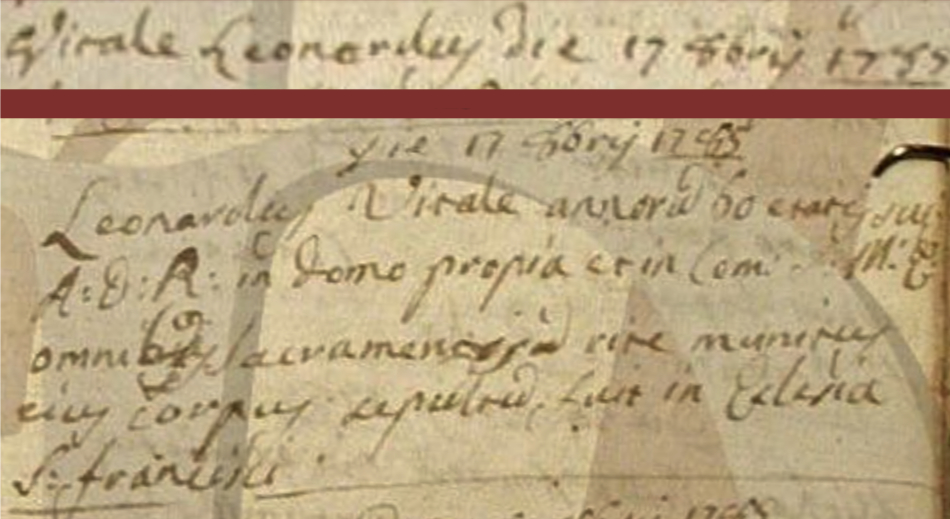 Vitale Leonardus die 17 8brij 1755
Die 17 8brij 1755
Leonardus Vitale annorū 60 etatis suę
A: D: R: in domo propia et in Com: M: E
omnibus sacramentis rite munitus
eius corpus sepultū fuit in Eclesia
S: francisci